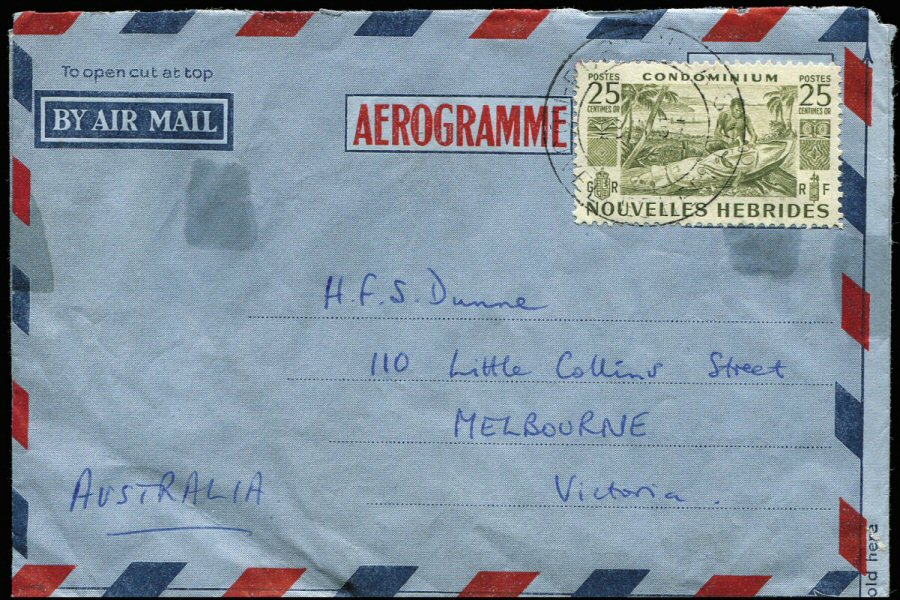 To open cut at top
BY AIR MAIL
AEROGRAMME
POSTES CONDOMINIUM POSTES
25 25
CENTIMES OR CENTIMES OR
G R R F
NOUVELLES HEBRIDES
H.F.S. Dunne
110 Little Collins Street
MELBOURNE
Victoria.
AUSTRALIA
old here